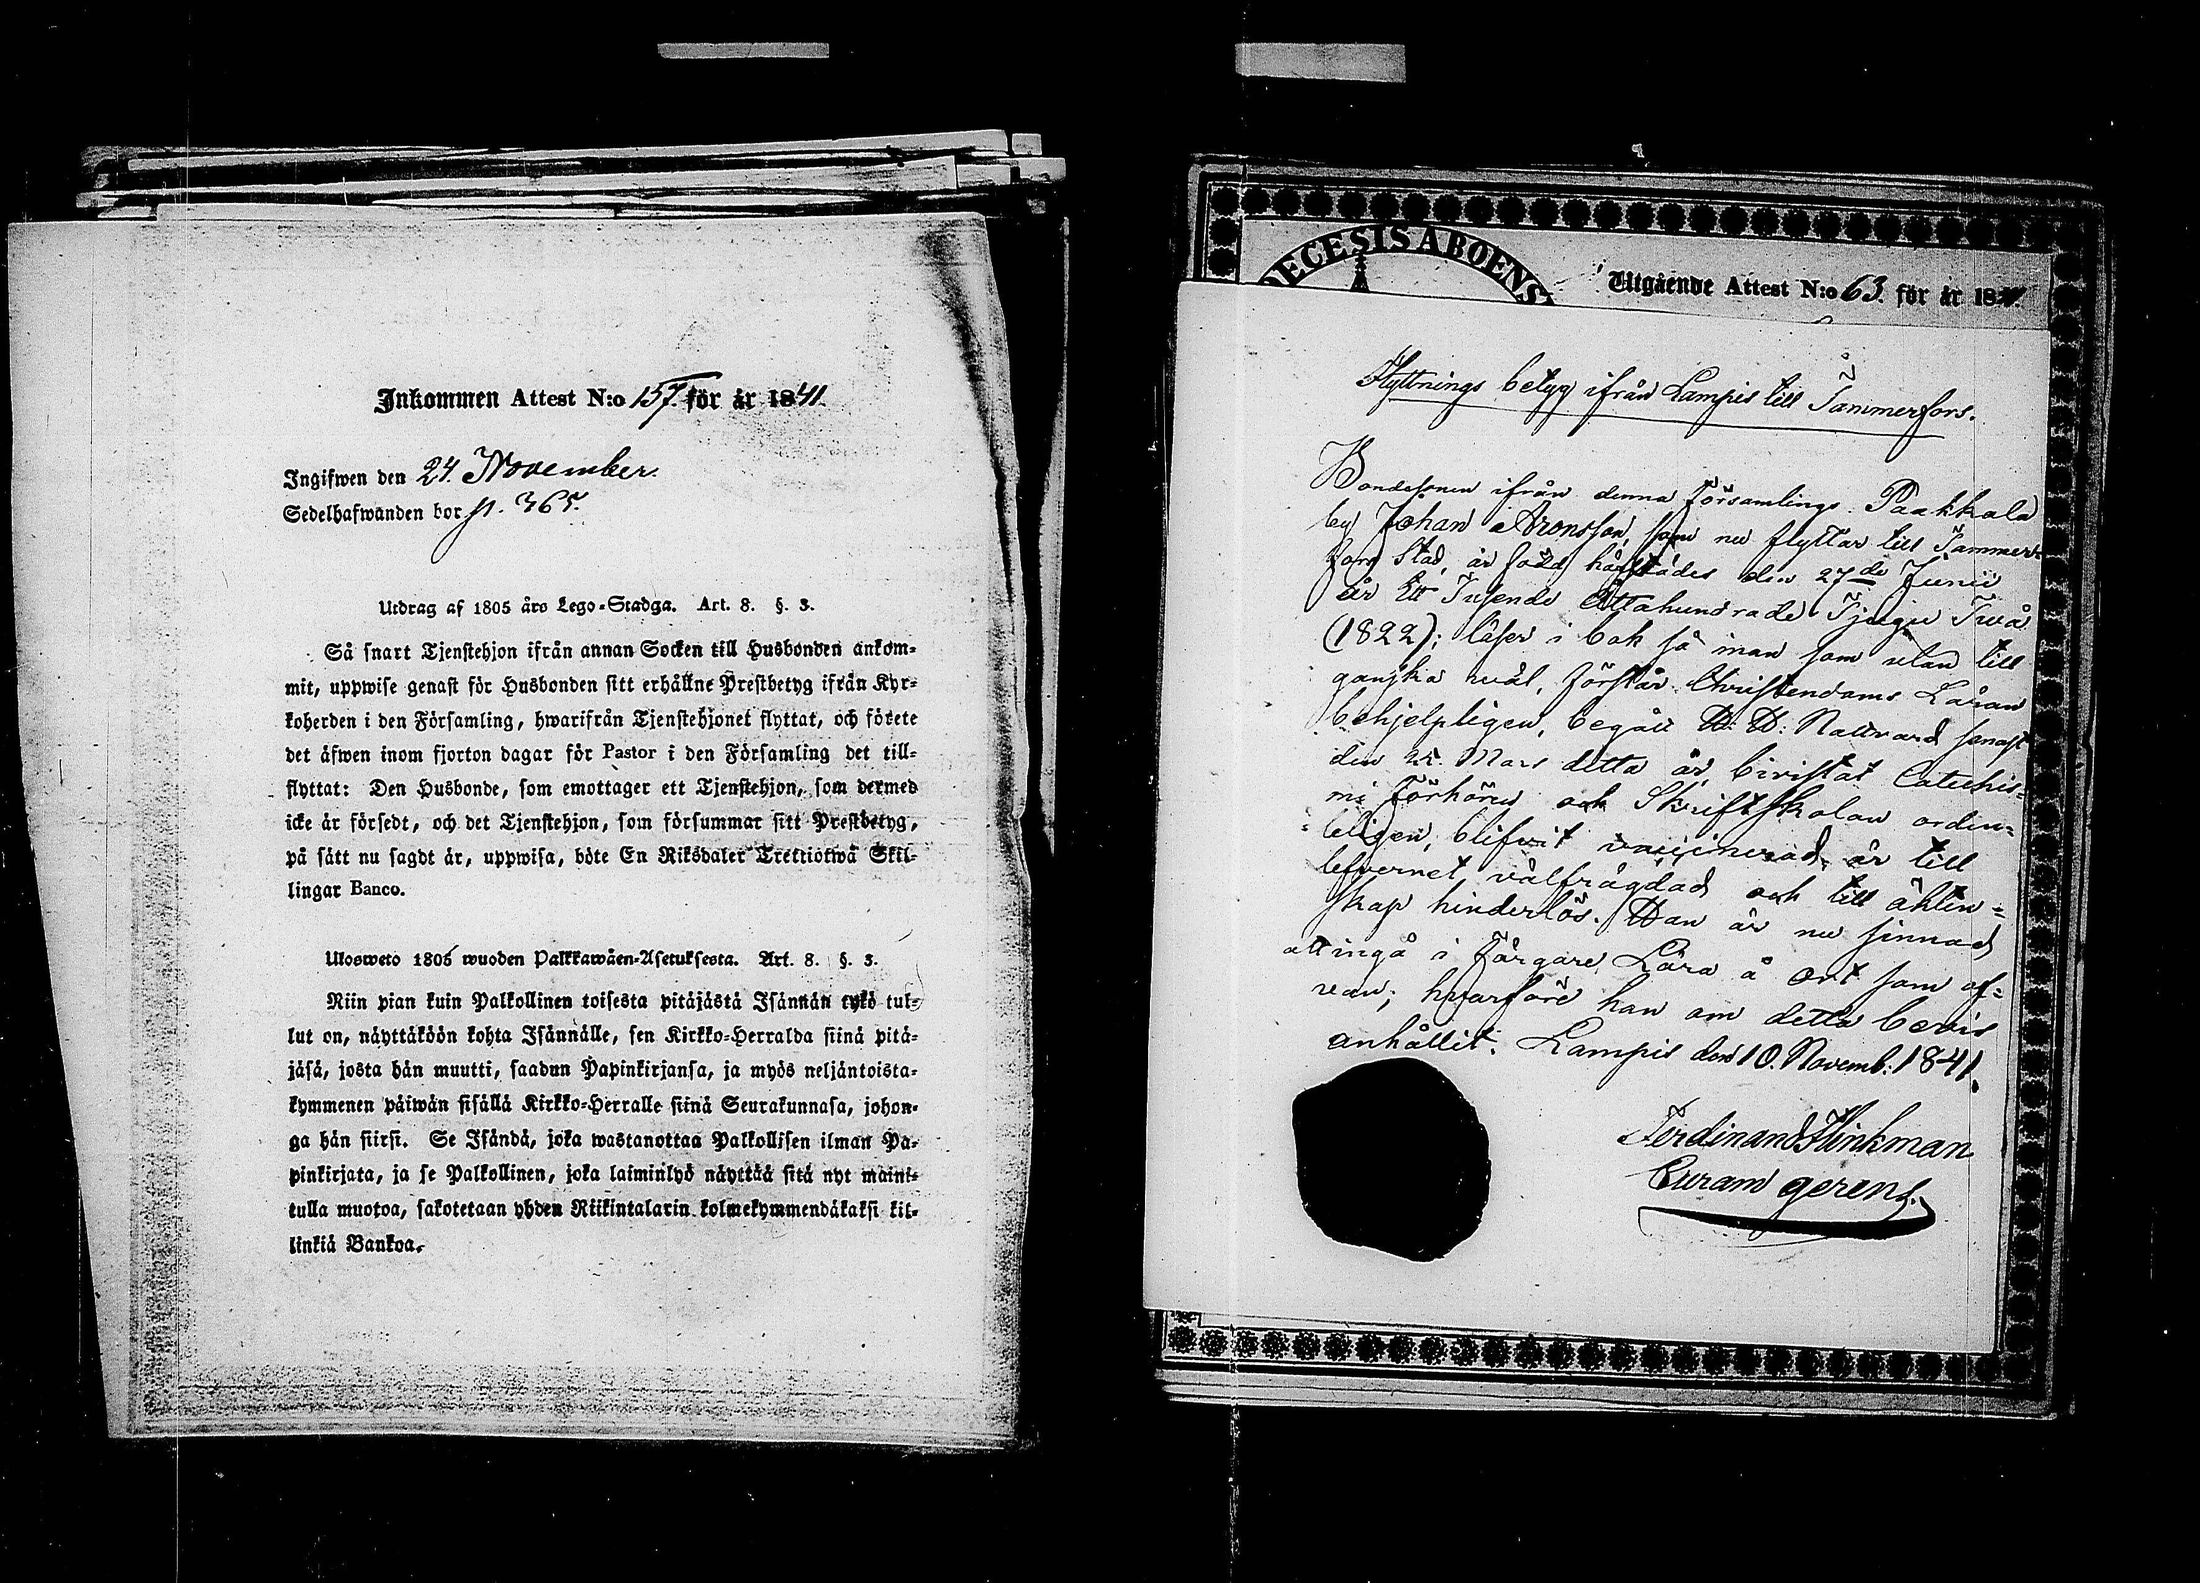 Inkommen Attest N:o 157. för år 1841.
Ingifwen den 24. November.
Sedelhafwanden bor p. 365.
Utdrag af 1805 års Lego-Stadga. Art. 8. §. 3.
Så snart Tjenstehjon ifrån annan Socken till Husbonden ankom-
mit, uppwise genast för Husbonden sitt erhållne Prestbetyg ifrån Kyr-
koherden i den Församling, hwarifrån Tjenstehjonet flyttat, och förete
det äfwen inom fjorton dagar för Pastor i den Församling det till-
flyttat: Den Husbonde, som emottager ett Tjenstehjon, som dermed
icke är försedt, och det Tjenstehjon, som försummar sitt Prestbetyg,
på sätt nu sagdt är, uppwisa, böte En Riksdaler Trettiotwå Skil-
lingar Banco.
Ulosweto 1805 wuoden Palkkawäen-Asetuksesta. Art. 8. §. 3.
Niin pian kuin Palkollinen toisesta pitäjästä Isännän tykö tul-
lut on, näyttäköön kohta Isännälle, sen Kirkko-Herralda siinä pitä-
jäsä, josta hän muutti, saadun Papinkirjansa, ja myös neljäntoista-
kymmenen päiwän sisällä Kirkko-Herralle siinä Seurakunnasa, johon-
ga hän siirsi. Se Isändä, joka wastanottaa Palkollisen ilman Pa-
pinkirjata, ja se Palkollinen, joka laiminlyö näyttää sitä nyt maini-
tulla muotoa, sakotetaan yhden Riikintalarin kolmekymmendäkaksi kil-
linkiä Bankoa.
DECESIS ABOENS
Utgående Attest N:o 63. för år 1841.
Flyttnings betyg ifrån Lampis till Tammerfors.
Bondesonen ifrån denna församlings Paakkala
by Johan Aronsson, som nu flyttar till Tammer-
fors Stad, är född härstädes den 27de Junii
år Ett Tusende Åttahundrade Tjugu Två
(1822); läser i bok så innan som utan till
ganska väl, förstår Christendoms Läran
behjelpligen, begått H. H. Nattvard senast
den 25. Mars detta år, bivistat Catechis-
mi Förhören och Skriftskolan orden-
teligen, blifvit vaccinerad, är till
lefvernet välfrägdad och till äkten-
skap hinderlös. Han är nu sinnad
att ingå i Färgare Lära å Ort som of-
van; hvarföre han om detta bevis
anhållit. Lampis den 10. Novemb. 1841.
Ferdinand Flinkman
Curam gerens.